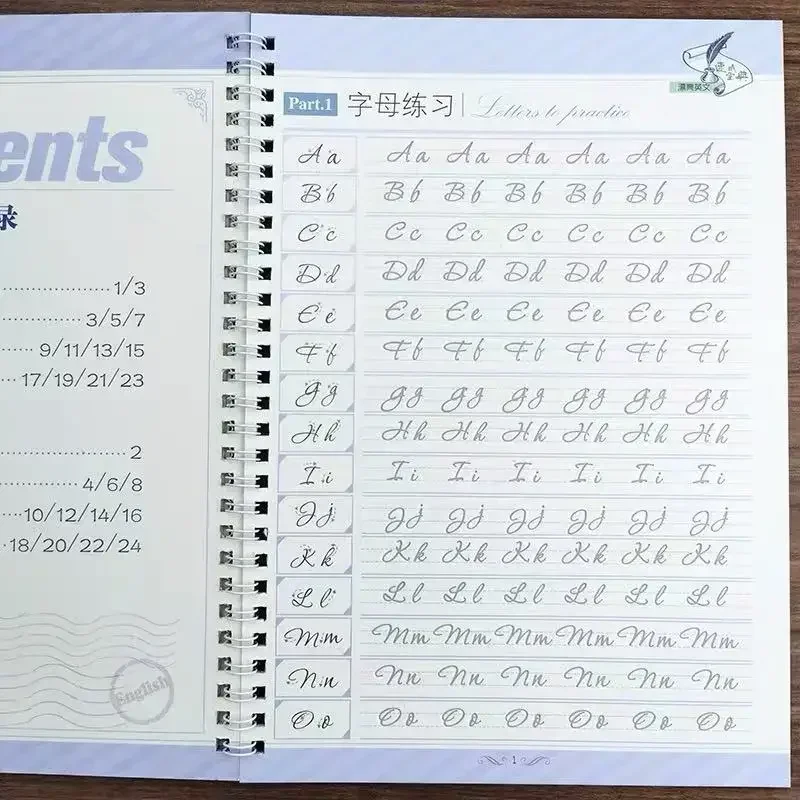 ents
录
1/3
3/5/7
9/11/13/15
17/19/21/23
2
4/6/8
10/12/14/16
18/20/22/24
English
漂亮英文
Part.1 字母练习 Letters to practice
Aa Aa Aa Aa Aa Aa Aa
Bb Bb Bb Bb Bb Bb Bb
Cc Cc Cc Cc Cc Cc Cc
Dd Dd Dd Dd Dd Dd Dd
Ee Ee Ee Ee Ee Ee Ee
Ff Ff Ff Ff Ff Ff Ff
Gg Gg Gg Gg Gg Gg Gg
Hh Hh Hh Hh Hh Hh Hh
Ii Ii Ii Ii Ii Ii Ii
Jj Jj Jj Jj Jj Jj Jj
Kk Kk Kk Kk Kk Kk Kk
Ll Ll Ll Ll Ll Ll Ll
Mm Mm Mm Mm Mm Mm Mm
Nn Nn Nn Nn Nn Nn Nn
Oo Oo Oo Oo Oo Oo Oo
1